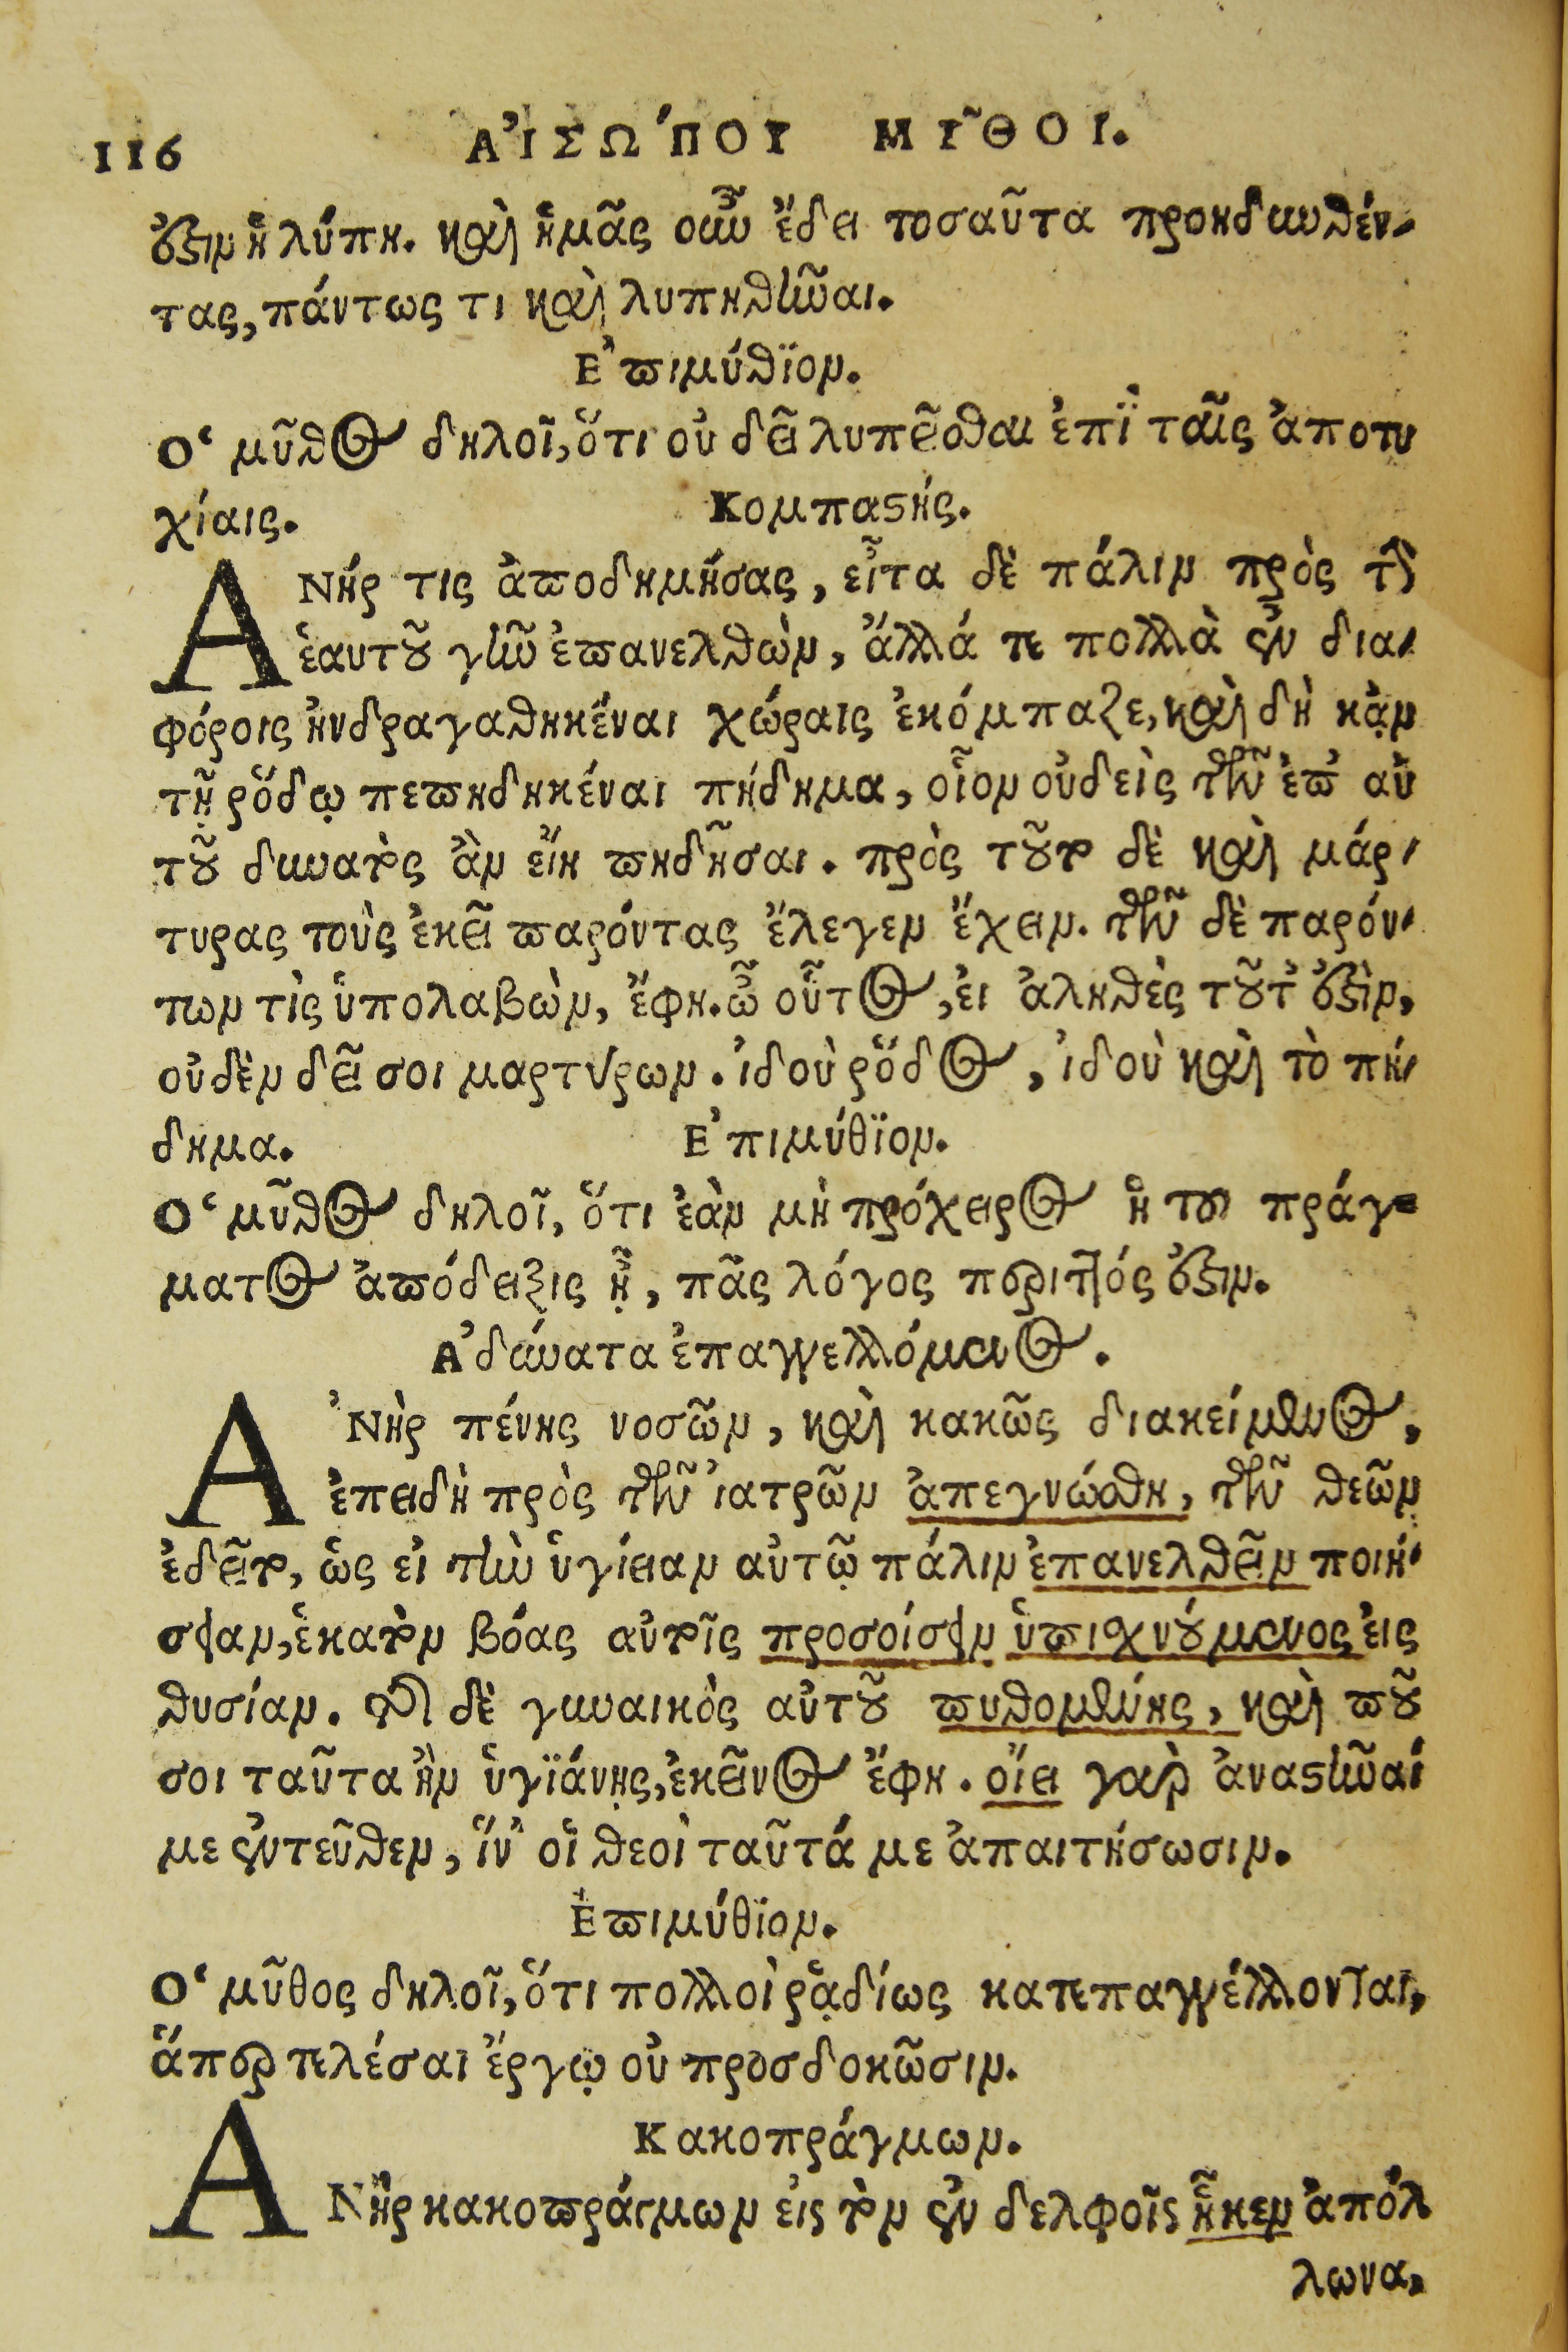 116 ΑἸΣΩΠΟΥ ΜΥ͂ΘΟΙ.
ἐστιν ἡ λύπη. καὶ ἡμᾶς οὖν ἔδει τοσαῦτα προηδυνθέν-
τας, πάντως τι καὶ λυπηθῆναι.
Ἐπιμύθϊον.
Ὁ μῦθος δηλοῖ, ὅτι οὐ δεῖ λυπεῖσθαι ἐπῒ ταῖς ἀποτυ
χίαις. Κομπαστής.
ΑΝήρ τις ἀποδημήσας, εἶτα δὲ πάλιν πρὸς τὴν
ἑαυτοῦ γῆν ἐπανελθὼν, ἄλλά τε πολλὰ ἐν δια-
φόροις ἠνδραγαθηκέναι χώραις ἐκόμπαζε, καὶ δὴ κᾀν
τῇ ῥόδῳ πεπηδηκέναι πήδημα, οἷον οὐδεὶς τῶν ἐπ' αὐ
τοῦ δυνατὸς ἂν εἴη πηδῆσαι. πρὸς τοῦτο δὲ καὶ μάρ-
τυρας τοὺς ἐκεῖ παρόντας ἔλεγεν ἔχειν. τῶν δὲ παρόν-
των τὶς ὑπολαβὼν, ἔφη. ὦ οὗτος, εἰ ἀληθὲς τοῦτ' ἐστὶν,
οὐδὲν δεῖ σοι μαρτύρων. ἰδοὺ ῥόδος, ἰδοὺ καὶ τὸ πή-
δημα. Ἐπιμύθϊον.
Ὁ μῦθος δηλοῖ, ὅτι ἐὰν μὴ πρόχειρος ἡ τοῦ πράγ-
ματος ἀπόδειξις ᾖ, πᾶς λόγος περιττός ἐστιν.
Ἀδύνατα ἐπαγγελλόμενος.
ἈΝὴρ πένης νοσῶν, καὶ κακῶς διακείμενος,
ἐπειδὴ πρὸς τῶν ἰατρῶν ἀπεγνώσθη, τῶν θεῶν
ἐδεῖτο, ὡς εἰ τὴν ὑγίειαν αὐτῷ πάλιν ἐπανελθεῖν ποιή-
σειαν, ἑκατὸν βόας αὐτοῖς προσοίσειν ὑπισχνούμενος εἰς
θυσίαν. τῆς δὲ γυναικὸς αὐτοῦ πυθομένης, καὶ ποῦ
σοι ταῦτα ἢν ὑγϊάνῃς, ἐκεῖνος ἔφη. οἴει γὰρ ἀναστῆναί
με ἐντεῦθεν, ἵν' οἱ θεοὶ ταῦτά με ἀπαιτήσωσιν.
Ἐπιμύθϊον.
Ὁ μῦθος δηλοῖ, ὅτι πολλοὶ ῥᾳδίως κατεπαγγέλλονται,
ἅπερ τελέσαι ἔργῳ οὐ προσδοκῶσιν.
Κακοπράγμων.
ΑΝῂρ κακοπράγμων εἰς τὸν ἐν δελφοῖς ἧκεν ἀπόλ
λωνα,